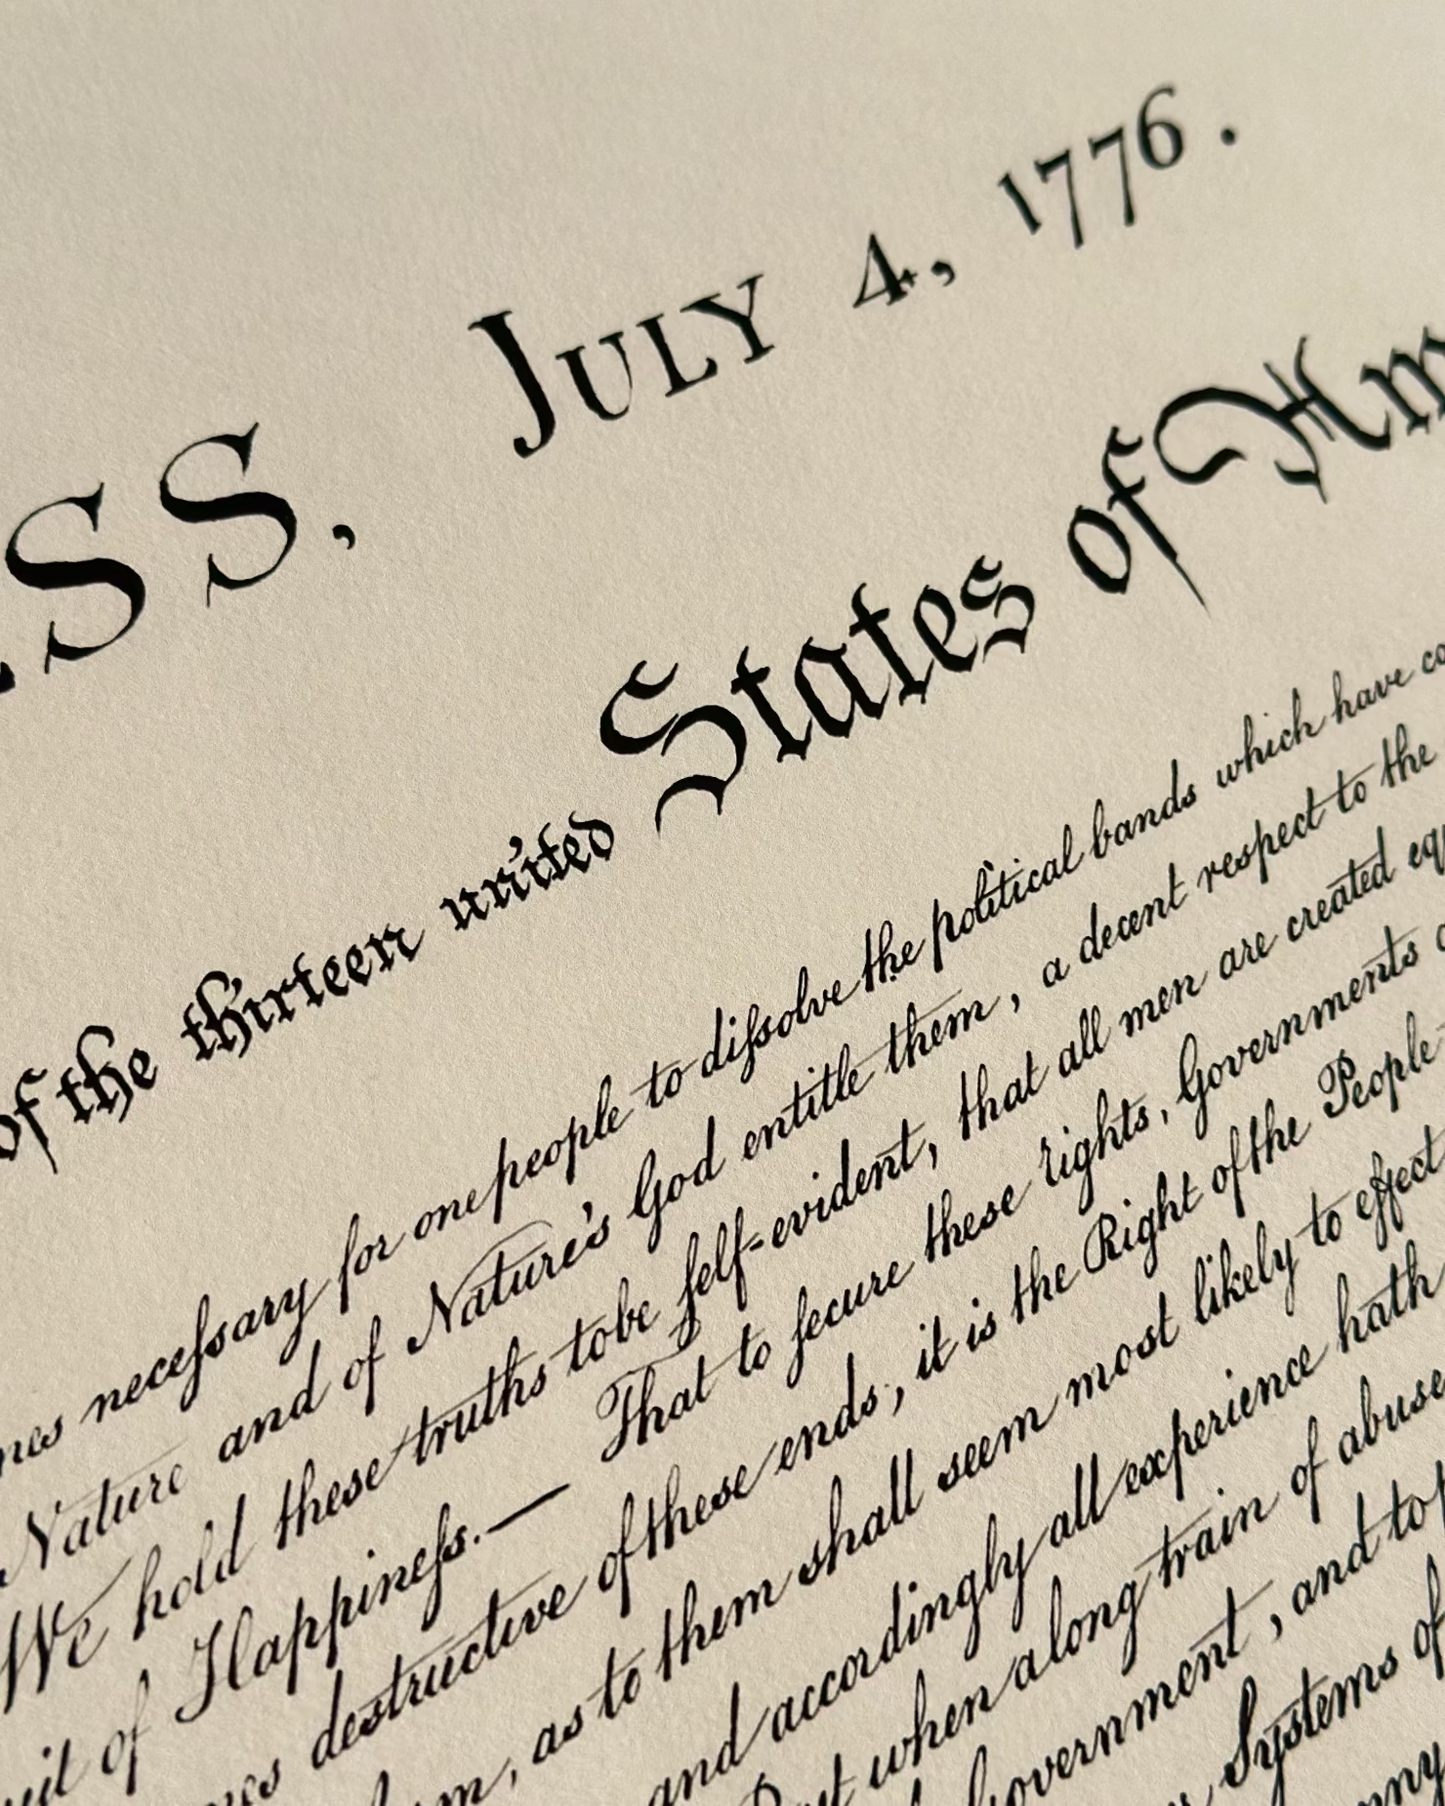 SS, JULY 4, 1776.
of the thirteen united States of Am
nes necessary for one people to dissolve the political bands which have co
Nature and of Nature's God entitle them, a decent respect to the
We hold these truths to be self-evident, that all men are created eq
uit of Happiness.— That to secure these rights, Governments
nes destructive of these ends, it is the Right of the People
m, as to them shall seem most likely to effect
and accordingly all experience hath
But when a long train of abuse
Government, and to
Systems of